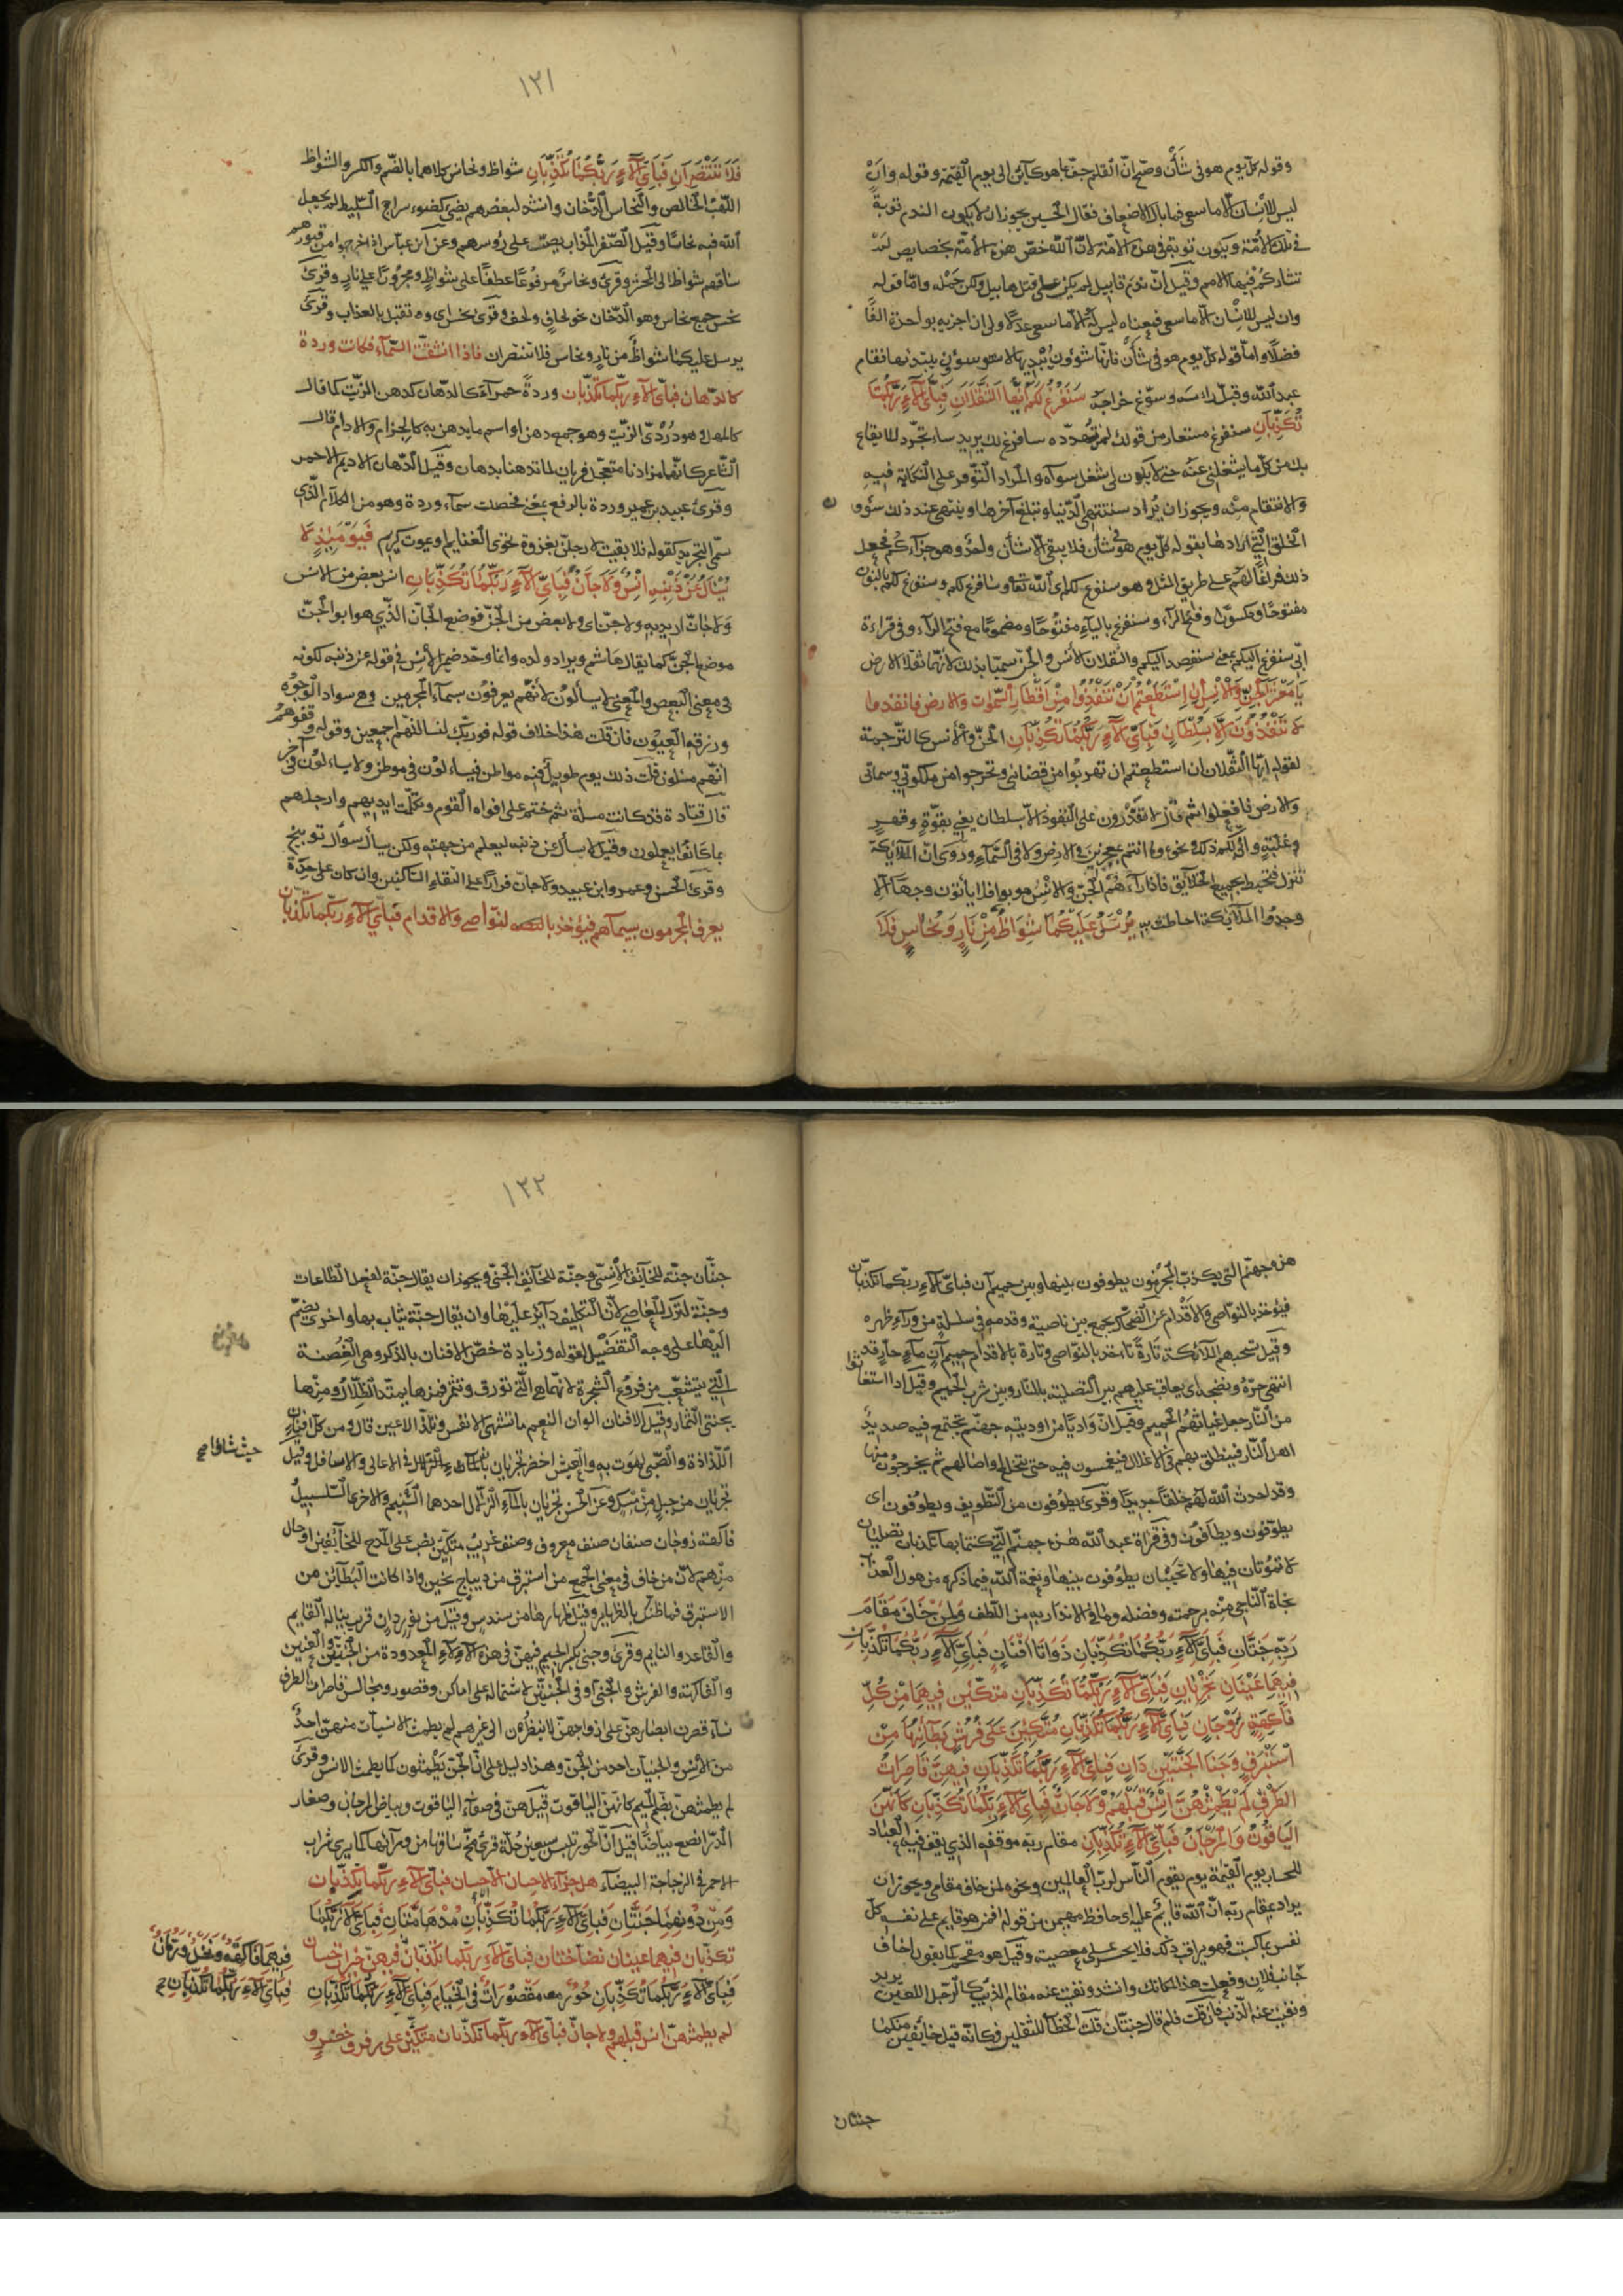 وقوله كل يوم هو في شأن وصح ان القلم جف بما هو كائن الى يوم القيمة وقوله وان
ليس للانسان الا ما سعى فما بال الاضعاف فقال الحسين يجوز ان لا يكون الندم توبة
في تلك الامة ويكون توبة في هذه الامة لان الله خص هذه الامة بخصايص لم
تشاركهم فيها الامم وقيل ان ندم قابيل لم يكن على قتل هابيل ولكن على حمله واما قوله
وان ليس للانسان الا ما سعى فمعناه ليس له الا ما سعى عدلا ولي ان اجزيه بواحدة الفا
فضلا واما قوله كل يوم هو في شأن فانها شؤون يبديها لا شؤون يبتديها فقام
عبد الله وقبل راسه وسوغ خراجه سنفرغ لكم ايها الثقلان فباي آلاء ربكما
تكذبان سنفرغ مستعار من قول الرجل لمن يتهدده سافرغ لك يريد ساتجرد للايقاع
بك من كل ما يشغلني عنه حتى لا يكون لي شغل سواه والمراد التوفر على النكاية فيه
والانتقام منه ويجوز ان يراد ستنتهي الدنيا وتبلغ آخرها وينتهي عند ذلك شؤون
الخلق التي ارادها بقوله كل يوم هو في شأن فلا يبقى الا شأن واحد وهو جزاؤكم فجعل
ذلك فراغا لهم على طريق المثل وقرئ سيفرغ لكم اي الله تعالى وسافرغ لكم وسنفرغ لكم بالنون
مفتوحا ومكسورا وفتح الراء وسيفرغ بالياء مفتوحا ومضموما مع فتح الراء وفي قراءة
ابي سنفرغ اليكم بمعنى سنقصد اليكم والثقلان الانس والجن سميا بذلك لانهما ثقلا الارض
يا معشر الجن والانس ان استطعتم ان تنفذوا من اقطار السموات والارض فانفذوا
لا تنفذون الا بسلطان فباي آلاء ربكما تكذبان الجن والانس كالترجمة
لقوله ايها الثقلان ان استطعتم ان تهربوا من قضائي وتخرجوا من ملكوتي وسمائي
والارض فافعلوا ثم قال لا تقدرون على النفوذ الا بسلطان يعني بقوة وقهر
وغلبة وانى لكم ذلك ونحوه وما انتم بمعجزين في الارض ولا في السماء وروى ان الملائكة
تنزل فتحيط بجميع الخلائق فاذا رآهم الجن والانس هربوا فلا ياتون وجها الا
وجدوا الملائكة احاطت به يرسل عليكما شواظ من نار ونحاس فلا
١٣١
فلا تنتصران فباي آلاء ربكما تكذبان شواظ ونحاس كلاهما بالضم والكسر والشواظ
اللهب الخالص والنحاس الدخان وانشد لبعضهم يضيء كضوء سراج السليط لم يجعل
الله فيه نحاسا وقيل الصفر المذاب يصب على رؤسهم وعن ابن عباس اذا خرجوا من قبورهم
ساقهم شواظ الى المحشر وقرئ ونحاس مرفوعا عطفا على شواظ ومجرورا على نار وقرئ
نحس جمع نحاس وهو الدخان نحو لحاف ولحف وقرئ ونحس اي ونقتل بالعذاب وقرئ
يرسل عليكما شواظا من نار ونحاسا فلا تنتصران فاذا انشقت السماء فكانت وردة
كالدهان فباي آلاء ربكما تكذبان وردة حمراء كالدهان كدهن الزيت كما قال
كالمهل وهو دردي الزيت وهو جمع دهن او اسم ما يدهن به كالحزام والادام قال
الشاعر كانهما مزادتا متعجل فريان لما تدهنا بدهان وقيل الدهان الاديم الاحمر
وقرئ عبيد بن عمير وردة بالرفع بمعنى فحصلت سماء وردة وهو من الكلام الذي
سمي التجريد كقوله فلئن بقيت لارحلن بغزوة نحو الغنايم او يموت كريم فيومئذ لا
يسأل عن ذنبه انس ولا جان فباي آلاء ربكما تكذبان انس بعض من الانس
ولا جان اريد به ولا جن اي ولا بعض من الجن فوضع الجان الذي هو ابو الجن
موضع الجن كما يقال هاشم ويراد ولده وانما وحد ضمير الانس في قوله عن ذنبه لكونه
في معنى البعض والمعنى لا يسألون لانهم يعرفون بسيماء المجرمين وهي سواد الوجوه
وزرقة العيون فان قلت هذا خلاف قوله فوربك لنسالنهم اجمعين وقوله وقفوهم
انهم مسئلون قلت ذلك يوم طويل فيه مواطن فيسألون في موطن ولا يسألون في آخر
قال قتادة قد كانت مسئلة ثم ختم على افواه القوم وتكلمت ايديهم وارجلهم
بما كانوا يعملون وقيل لا يسأل عن ذنبه ليعلم من جهته ولكن يسأل سؤال توبيخ
وقرئ الحسن وعمرو ابن عبيد ولا جأن فرارا من التقاء الساكنين وان كان على حده
يعرف المجرمون بسيماهم فيؤخذ بالنواصي والاقدام فباي آلاء ربكما تكذبان
هذه جهنم التي يكذب بها المجرمون يطوفون بينها وبين حميم آن فباي آلاء ربكما تكذبان
فيؤخذ بالنواصي والاقدام عن الضحاك يجمع بين ناصيته وقدمه في سلسلة من وراء ظهره
وقيل تسحبهم الملائكة تارة تاخذ بالنواصي وتارة بالاقدام حميم آن ماء حار قد
انتهى حره ونضجه اي يعاقب عليهم بين التصلية بالنار وبين شرب الحميم وقيل اذا استغاثوا
من النار جعل غياثهم الحميم وقيل ان واديا من اودية جهنم يجتمع فيه صديد
اهل النار فينطلق بهم في الاغلال فيغمسون فيه حتى تنخلع اوصالهم ثم يخرجون منها
وقد احدث الله لهم خلقا جديدا وقرئ يطوفون من التطويف ويطوفون اي
يطوفون ويطافون وفي قراءة عبد الله هذه جهنم التي كنتما بها تكذبان تصليان
لا تموتان فيها ولا تحييان يطوفون بينها ونعمة الله فيما ذكره من هول العذاب
نجاة الناجي منه برحمته وفضله وما في الانذار به من اللطف ولمن خاف مقام
ربه جنتان فباي آلاء ربكما تكذبان ذواتا افنان فباي آلاء ربكما تكذبان
فيهما عينان تجريان فباي آلاء ربكما تكذبان متكئين فيهما من كل
فاكهة زوجان فباي آلاء ربكما تكذبان متكئين على فرش بطائنها من
استبرق وجنا الجنتين دان فباي آلاء ربكما تكذبان فيهن قاصرات
الطرف لم يطمثهن انس قبلهم ولا جان فباي آلاء ربكما تكذبان كانهن
الياقوت والمرجان فباي آلاء تكذبان مقام ربه موقفه الذي يقف فيه العباد
للحساب يوم القيمة يوم يقوم الناس لرب العالمين ونحوه لمن خاف مقامي ويجوز ان
يراد بمقام ربه ان الله قايم عليه اي حافظ مهيمن من قوله افمن هو قايم على كل
نفس بما كسبت فهو يراقب ذلك فلا يجسر على معصيته وقيل هو مقحم كما يقول اخاف
جانب فلان وفعلت هذا لمكانك وانشد ونفيت عنه مقام الذئب كالرجل اللعين يريد
ونفيت عنه الذئب فان قلت فلم قال جنتان قلت الخطاب للثقلين فكانه قيل خائفين منكما
جنتان
١٣٢
جنتان جنة للخائف الانسي وجنة للخائف الجني ويجوز ان يقال جنة لفعل الطاعات
وجنة لترك المعاصي لان التكليف دائر عليهما وان يقال جنة يثاب بها واخرى يضم
اليها على وجه التفضيل لقوله وزيادة خص الافنان بالذكر وهي الغصنة
التي تتشعب من فروع الشجرة لانها هي التي تورق وتثمر فمنها يمتد الظلال ومنها
يجتنى الثمار وقيل الافنان الوان النعم ما تشتهي الانفس وتلذ الاعين قال ومن كل افنان
اللذاذة والصبى لهوت به والعيش اخضر تجريان في الاعالي والاسافل وقيل
حيث شاؤا صح
تجريان من جبل من مسك وعن الحسن تجريان بالماء الزلال احدهما التسنيم والاخرى السلسبيل
فاكهة زوجان صنفان صنف معروف وصنف غريب متكئين نصب على المدح للخائفين او حال
منهم لان من خاف في معنى الجمع من استبرق من ديباج ثخين واذا كانت البطائن من
الاستبرق فما ظنك بالظهاير وقيل ظهايرها من سندس وقيل من نور دان قريب يناله القايم
والقاعد والنايم وقرئ وجنى بكسر الجيم فيهن في هذه الآلاء المعدودة من الجنتين والعينين
والفاكهة والفرش والجنى او في الجنتين لاشتمالهما على اماكن وقصور ومجالس قاصرات الطرف
نساء قصرن ابصارهن على ازواجهن لا ينظرن الى غيرهم لم يطمث الانسيات منهن احد
من الانس والجنيات احد من الجن وهذا دليل على ان الجن يطمثون كما يطمث الانس وقرئ
لم يطمثهن بضم الميم كانهن الياقوت قيل هن في صفاء الياقوت وبياض المرجان وصغار
الدر انصع بياضا قيل ان الحور تلبس سبعين حلة فيرى مخ ساقها من ورائها كما يرى شراب
الاحمر في الزجاجة البيضاء هل جزآء الاحسان الا الاحسان فباي آلاء ربكما تكذبان
ومن دونهما جنتان فباي آلاء ربكما تكذبان مدهامتان فباي آلاء ربكما
تكذبان فيهما عينان نضاختان فباي آلاء ربكما تكذبان فيهن خيرات حسان
فيهما فاكهة ونخل ورمان
فباي آلاء ربكما تكذبان صح
فباي آلاء ربكما تكذبان حور مقصورات في الخيام فباي آلاء ربكما تكذبان
لم يطمثهن انس قبلهم ولا جان فباي آلاء ربكما تكذبان متكئين على رفرف خضر و